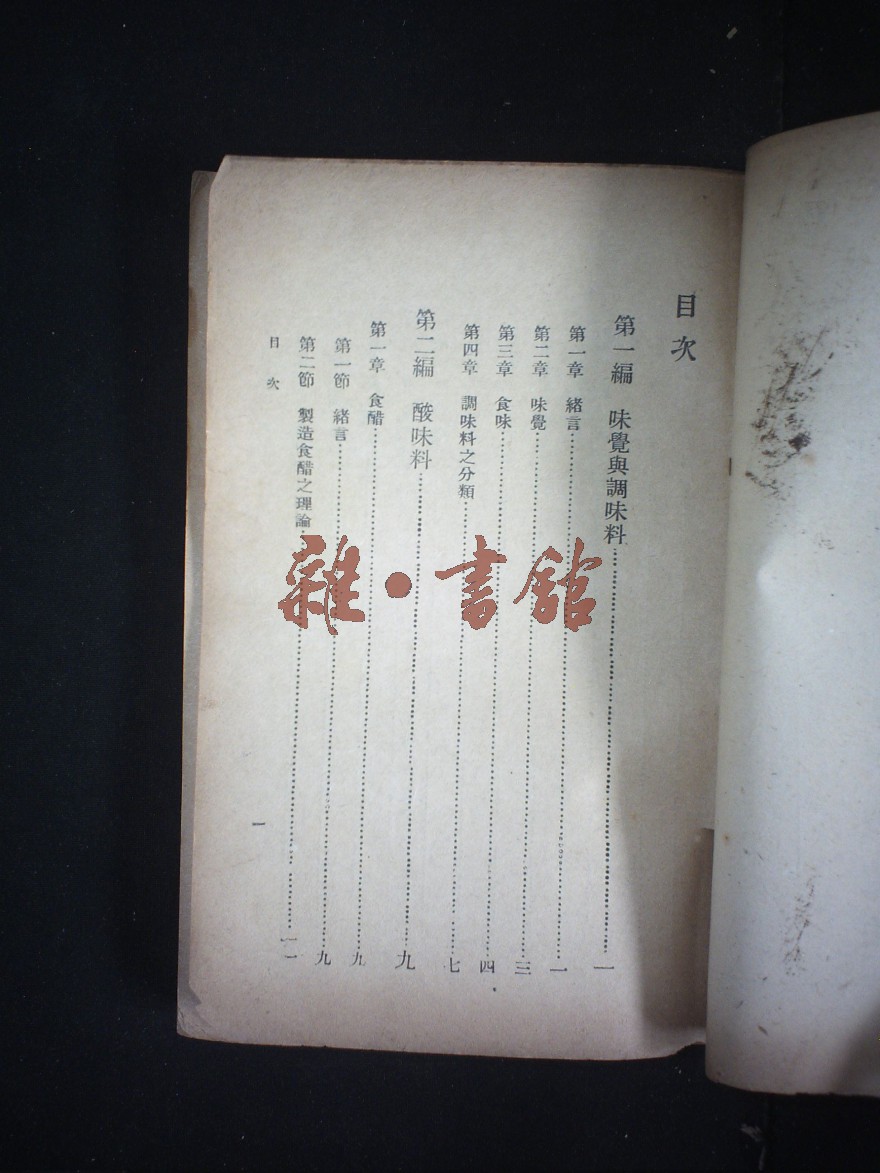 目次
第一編　味覺與調味料……一
第一章　緒言……一
第二章　味覺……三
第三章　食味……四
第四章　調味料之分類……七
第二編　酸味料……九
第一章　食醋……九
第一節　緒言……九
第二節　製造食醋之理論……一一
目次
一
雜·書館